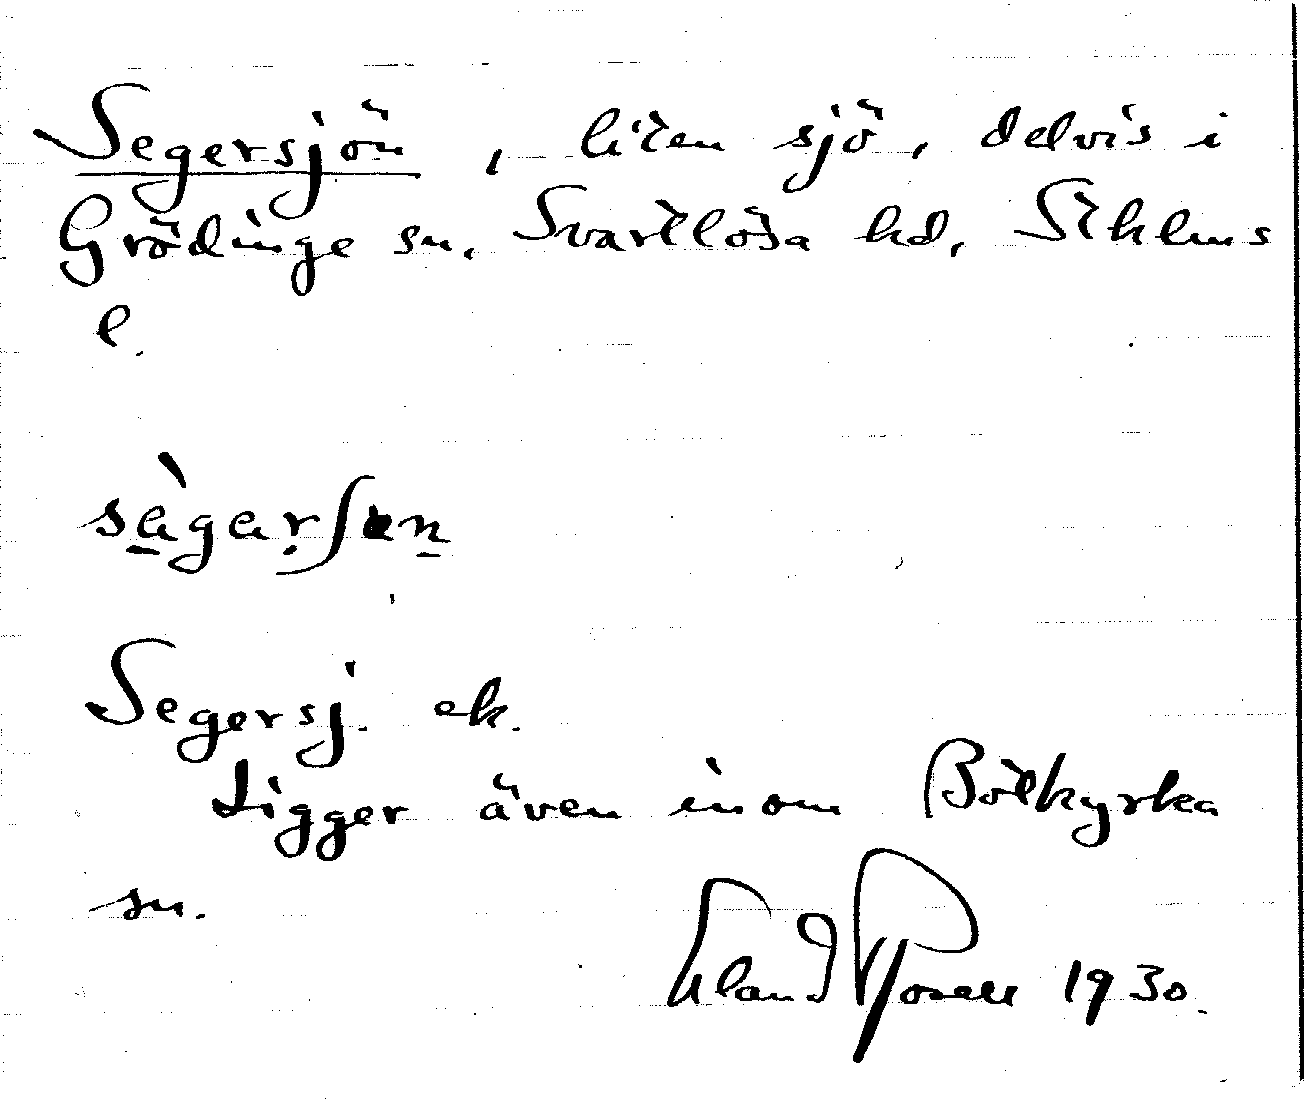 Segersjön, liten sjö, delvis i
Grödinge sn. Svartlösa hd, Sthlms
l.
Segersj. ek.
Ligger även inom Botkyrka
sn.
Erland Rosell 1930.